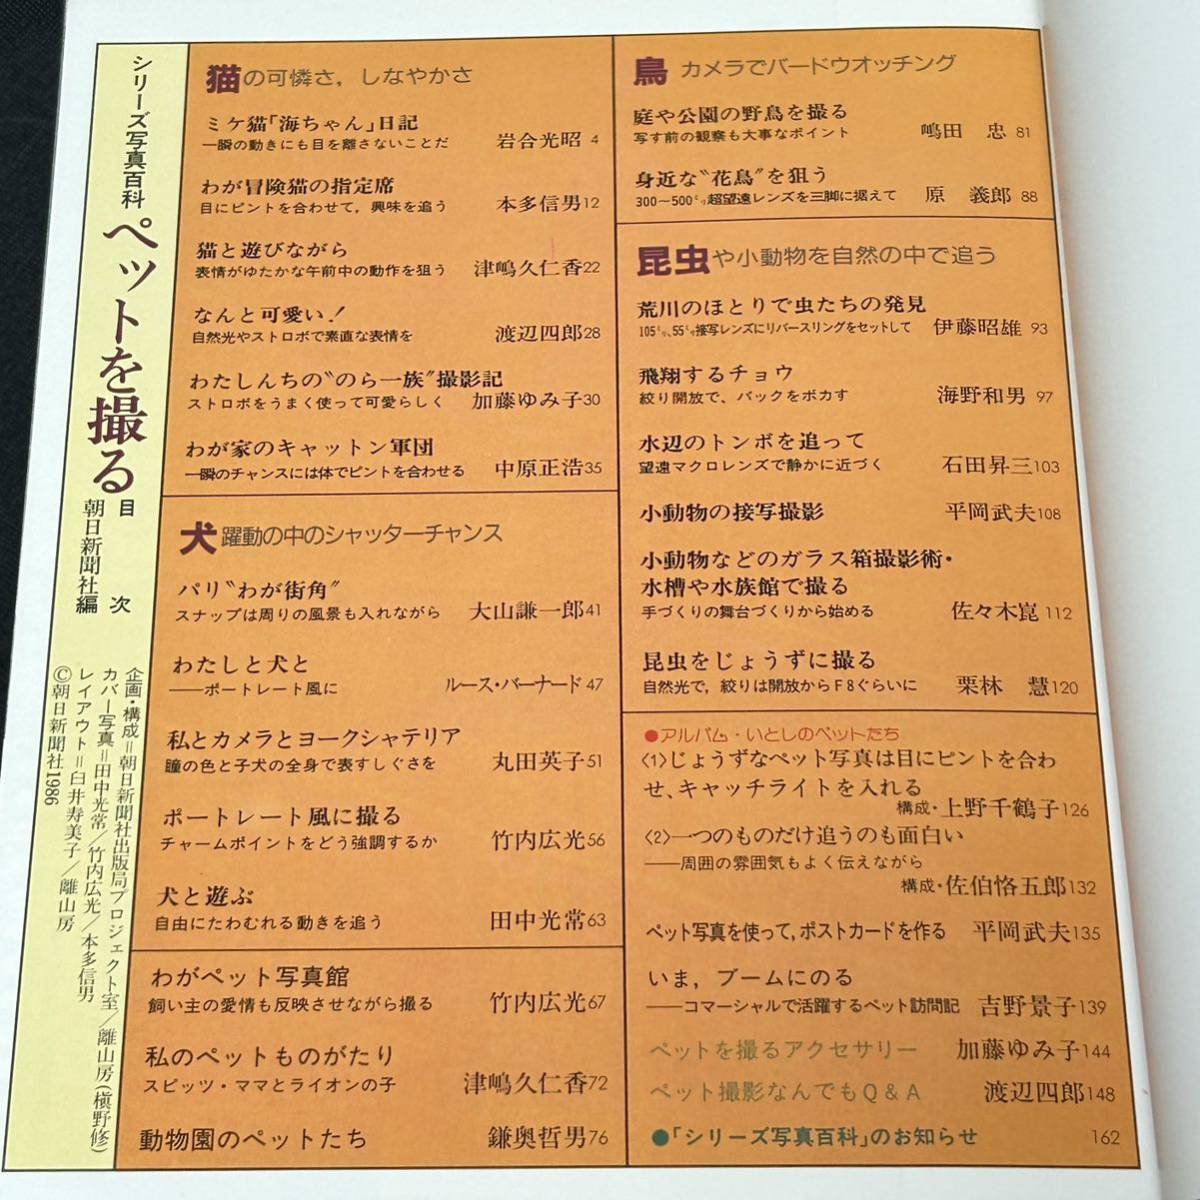 シリーズ写真百科
ペットを撮る
目次
朝日新聞社編
企画・構成＝朝日新聞社出版局プロジェクト室／離山房(槇野修)
カバー写真＝田中光常／竹内広光／本多信男
レイアウト＝臼井寿美子／離山房
©朝日新聞社1986
猫の可憐さ，しなやかさ
ミケ猫「海ちゃん」日記
一瞬の動きにも目を離さないことだ 岩合光昭 4
わが冒険猫の指定席
目にピントを合わせて，興味を追う 本多信男12
猫と遊びながら
表情がゆたかな午前中の動作を狙う 津嶋久仁香22
なんと可愛い！
自然光やストロボで素直な表情を 渡辺四郎28
わたしんちの〝のら一族〟撮影記
ストロボをうまく使って可愛らしく 加藤ゆみ子30
わが家のキャットン軍団
一瞬のチャンスには体でピントを合わせる 中原正浩35
犬 躍動の中のシャッターチャンス
パリ〝わが街角〟
スナップは周りの風景も入れながら 大山謙一郎41
わたしと犬と
——ポートレート風に ルース・バーナード 47
私とカメラとヨークシャテリア
瞳の色と子犬の全身で表すしぐさを 丸田英子51
ポートレート風に撮る
チャームポイントをどう強調するか 竹内広光56
犬と遊ぶ
自由にたわむれる動きを追う 田中光常63
わがペット写真館
飼い主の愛情も反映させながら撮る 竹内広光67
私のペットものがたり
スピッツ・ママとライオンの子 津嶋久仁香72
動物園のペットたち 鎌奥哲男76
鳥 カメラでバードウオッチング
庭や公園の野鳥を撮る
写す前の観察も大事なポイント 嶋田 忠 81
身近な〝花鳥〟を狙う
300～500㍉超望遠レンズを三脚に据えて 原 義郎 88
昆虫や小動物を自然の中で追う
荒川のほとりで虫たちの発見
105㍉、55㍉接写レンズにリバースリングをセットして 伊藤昭雄 93
飛翔するチョウ
絞り開放で、バックをボカす 海野和男 97
水辺のトンボを追って
望遠マクロレンズで静かに近づく 石田昇三103
小動物の接写撮影 平岡武夫108
小動物などのガラス箱撮影術・
水槽や水族館で撮る
手づくりの舞台づくりから始める 佐々木崑 112
昆虫をじょうずに撮る
自然光で，絞りは開放からF8ぐらいに 栗林 慧120
●アルバム・いとしのペットたち
〈1〉じょうずなペット写真は目にピントを合わ
せ、キャッチライトを入れる
構成・上野千鶴子126
〈2〉一つのものだけ追うのも面白い
——周囲の雰囲気もよく伝えながら
構成・佐伯恪五郎132
ペット写真を使って，ポストカードを作る 平岡武夫135
いま，ブームにのる
——コマーシャルで活躍するペット訪問記 吉野景子139
ペットを撮るアクセサリー 加藤ゆみ子144
ペット撮影なんでもQ＆A 渡辺四郎148
●「シリーズ写真百科」のお知らせ 162